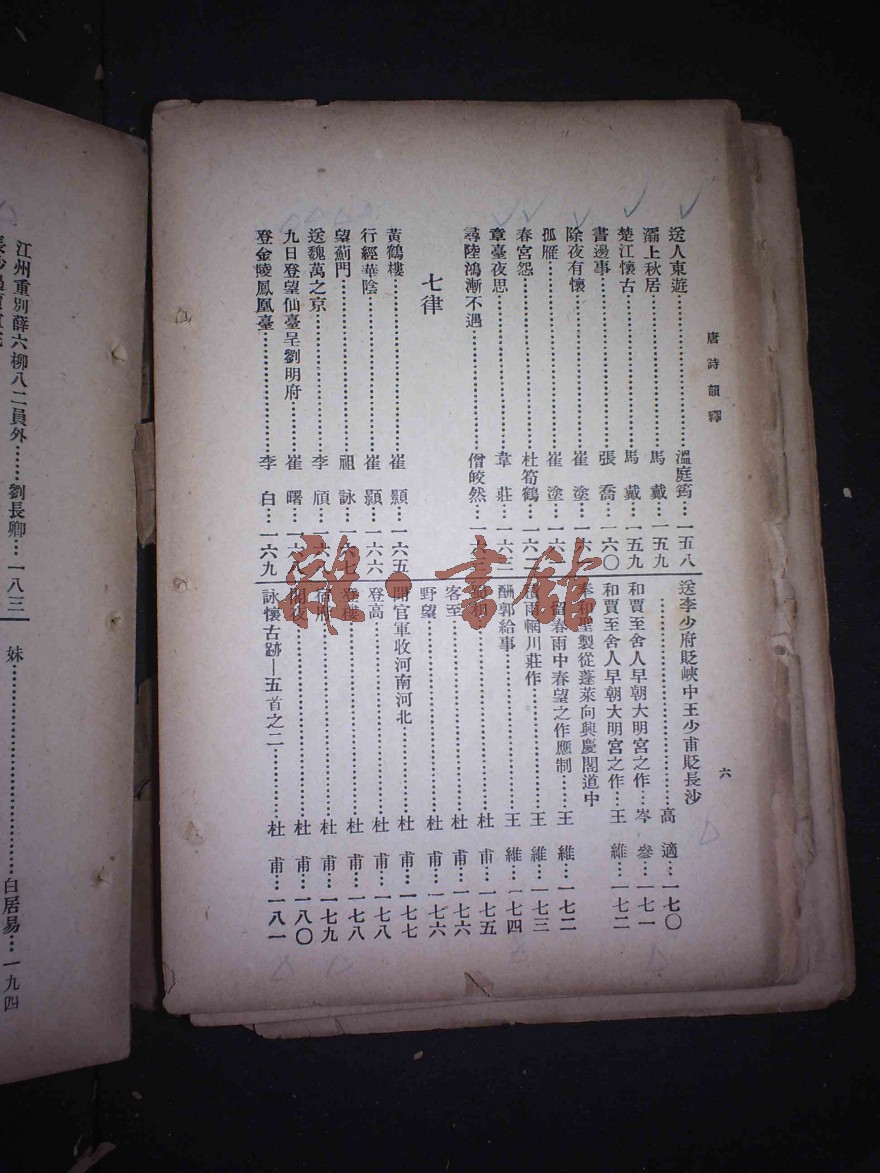 唐詩韻釋
六
送人東遊……溫庭筠…一五八
灞上秋居……馬戴…一五九
楚江懷古……馬戴…一五九
書邊事……張喬…一六〇
除夜有懷……崔塗…一六
孤雁……崔塗…一六
春宮怨……杜荀鶴…一六二
章臺夜思……韋莊…一六三
尋陸鴻漸不遇……僧皎然…一
七律
黃鶴樓……崔顥…一六五
行經華陰……崔顥…一六六
望薊門……祖詠…一六七
送魏萬之京……李頎…一六八
九日登望仙臺呈劉明府……崔曙…一六
登金陵鳳凰臺……李白…一六九
送李少府貶峽中王少甫貶長沙
……高適…一七〇
和賈至舍人早朝大明宮之作…岑參…一七一
和賈至舍人早朝大明宮之作…王維…一七二
奉和聖製從蓬萊向興慶閣道中
留春雨中春望之作應制…王維…一七二
雨輞川莊作……王維…一七三
酬郭給事……王維…一七四
杜甫…一七五
客至……杜甫…一七六
野望……杜甫…一七六
聞官軍收河南河北……杜甫…一七七
登高……杜甫…一七八
登樓……杜甫…一七八
宿府……杜甫…一七九
閣夜……杜甫…一八〇
詠懷古跡—五首之二……杜甫…一八一
江州重別薛六柳八二員外……劉長卿…一八三
妹……白居易…一九四
雜·書館